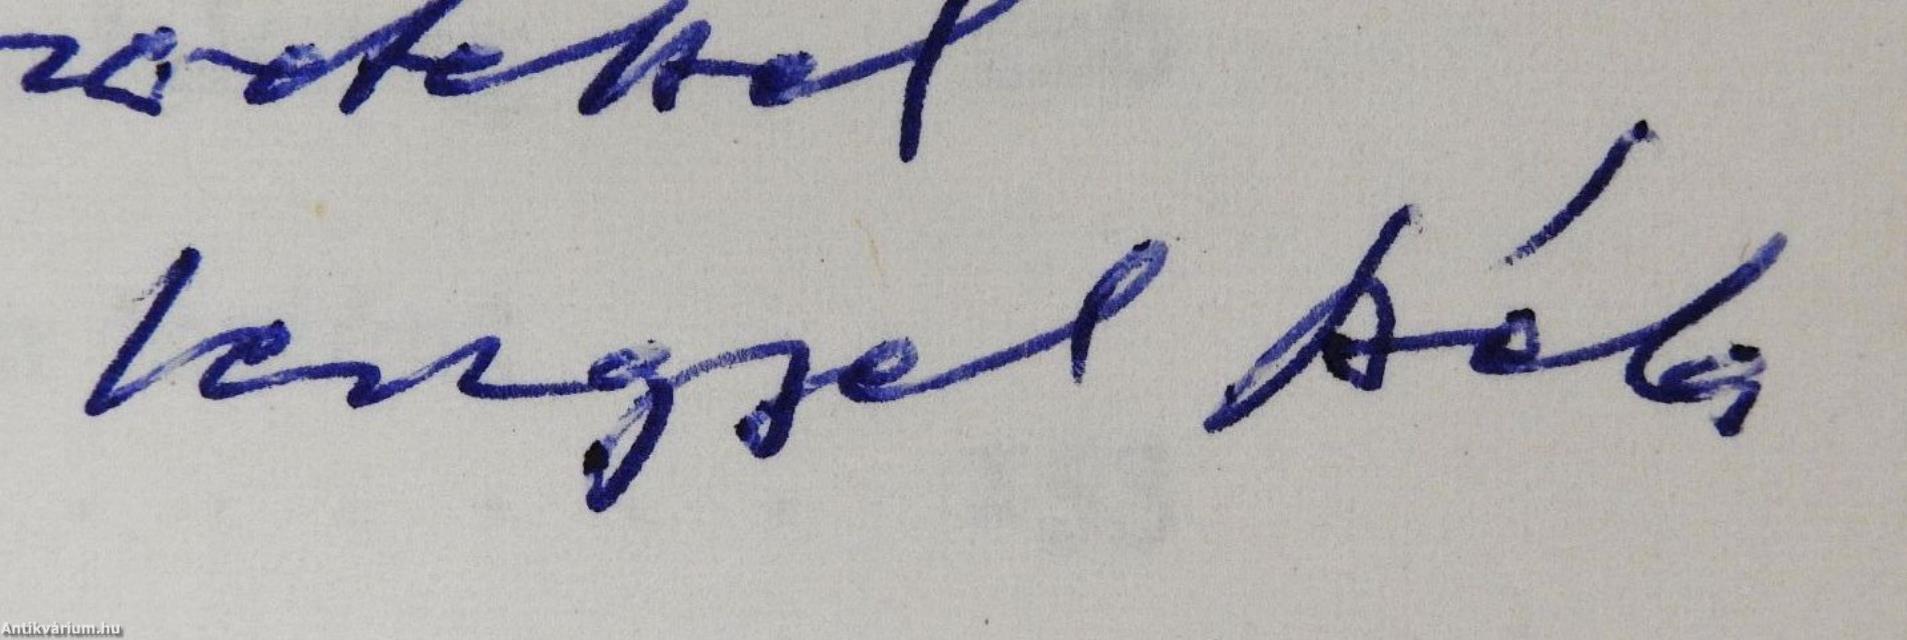 zeretettel
Lengyel Béla
Antikvárium.hu